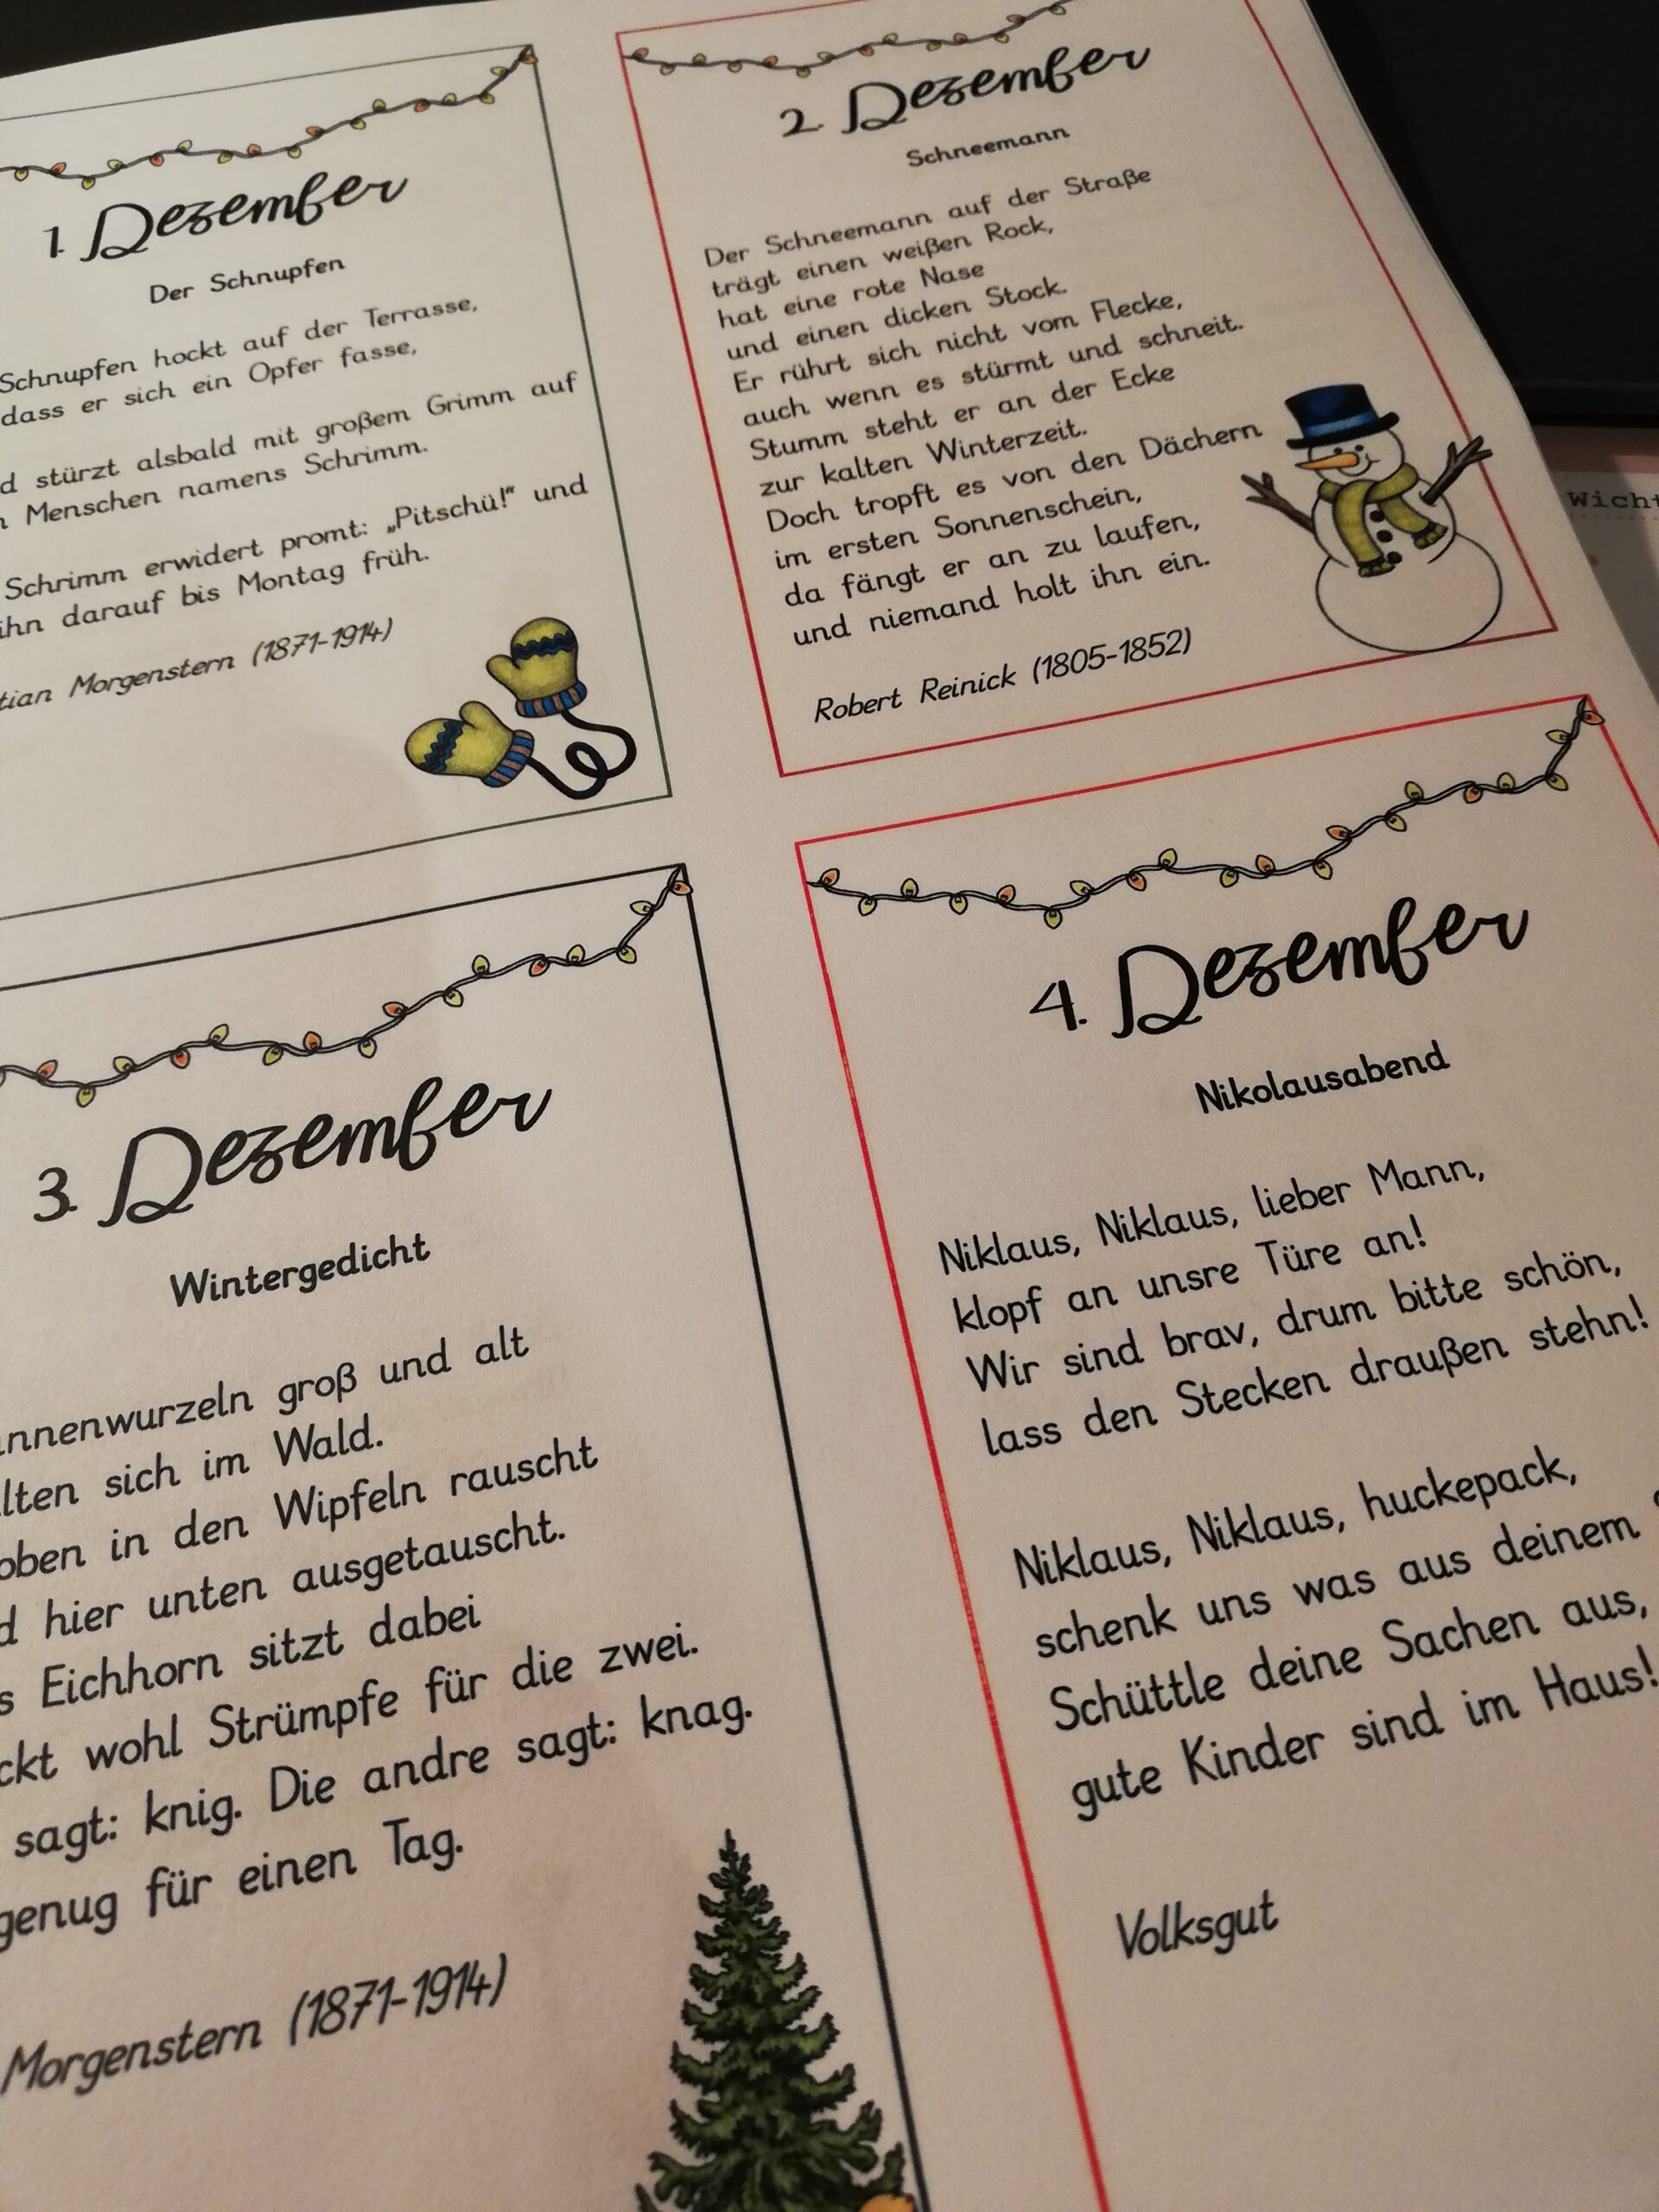 1. Dezember
Der Schnupfen
Schnupfen hockt auf der Terrasse,
dass er sich ein Opfer fasse,
stürzt alsbald mit großem Grimm auf
Menschen namens Schrimm.
Schrimm erwidert promt: „Pitschü!“ und
ihn darauf bis Montag früh.
Morgenstern (1871-1914)
2. Dezember
Schneemann
Der Schneemann auf der Straße
trägt einen weißen Rock,
hat eine rote Nase
und einen dicken Stock.
Er rührt sich nicht vom Flecke,
auch wenn es stürmt und schneit.
Stumm steht er an der Ecke
zur kalten Winterzeit.
Doch tropft es von den Dächern
im ersten Sonnenschein,
da fängt er an zu laufen,
und niemand holt ihn ein.
Robert Reinick (1805-1852)
3. Dezember
Wintergedicht
groß und alt
sich im Wald.
oben in den Wipfeln rauscht
hier unten ausgetauscht.
Eichhorn sitzt dabei
wohl Strümpfe für die zwei.
sagt: knig. Die andre sagt: knag.
genug für einen Tag.
Morgenstern (1871-1914)
4. Dezember
Nikolausabend
Niklaus, Niklaus, lieber Mann,
klopf an unsre Türe an!
Wir sind brav, drum bitte schön,
lass den Stecken draußen stehn!
Niklaus, Niklaus, huckepack,
schenk uns was aus deinem
Schüttle deine Sachen aus,
gute Kinder sind im Haus!
Volksgut